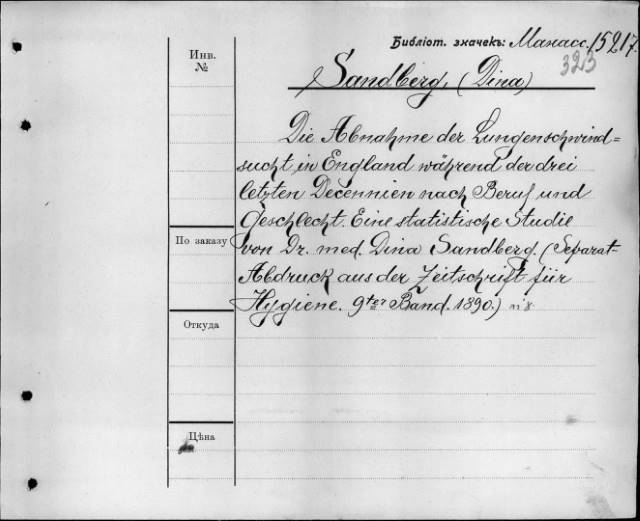 Библіот. значекъ: Манасс. 15217.
323
Инв.
№
Sandberg, (Dina)
Die Abnahme der Lungenschwind=
sucht in England während der drei
letzten Decennien nach Beruf und
Geschlecht. Eine statistische Studie
По заказу
von Dr. med. Dina Sandberg. (Separat-
Abdruck aus der Zeitschrift für
Hygiene. 9ter Band. 1890.) in 8.
Откуда
Цѣна